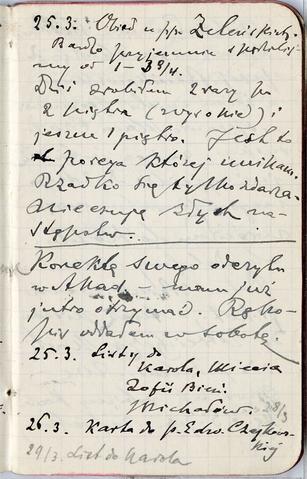 25.3. Obiad u pp. Zeleńskich.
Bardzo przyjemnie spędzoliś-
my od 1 – 3 3/4.
Dziś zrobiłam 2 razy po
2 piętra (wysokie) i
jeszcze 1 piętro. Jest to
poręga której unikam.
Rzadko się tylko zdarza.
Nie czuję złych na-
stępstw.
Korektę swego odczytu
w Akad. – mam już
jutro otrzymać. Ręko-
pis oddałam w sobotę.
25.3. Listy do
Karola, Miecia
Zofii Bicz.
Michałów. 28/3
26.3. Karta do p. Edw. Czajkow-
skiej
29/3. List do Karola